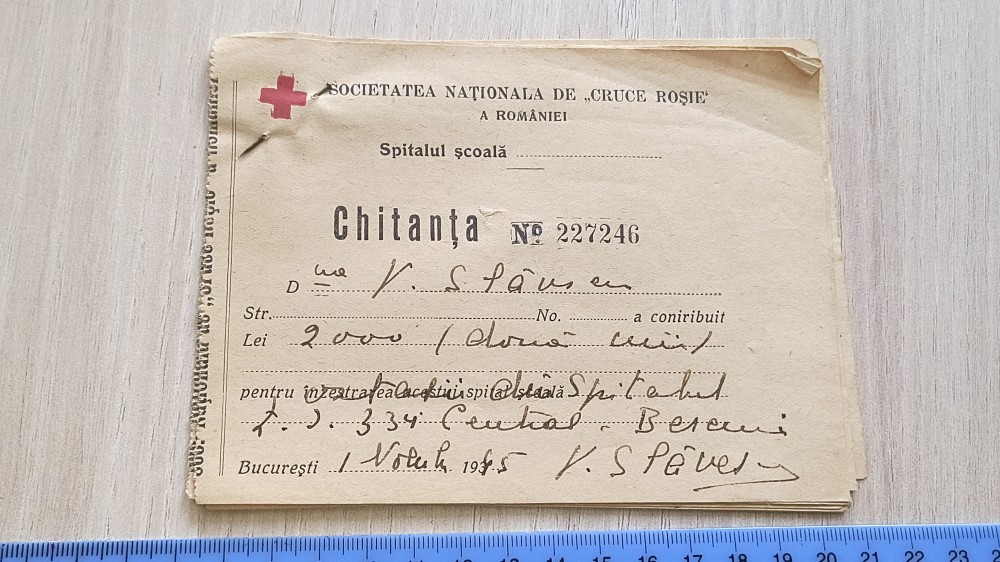 SOCIETATEA NAŢIONALA DE „CRUCE ROŞIE“
A ROMÂNIEI
Spitalul şcoală
Chitanţa No 227246
D na V. Slăvescu
Str. No. a coniribuit
Lei 2000 (două mii)
pentru înzestrarea acestui spital şcoală din Spitalul
334 Central
Bucureşti 1 1945 V. Slăvescu
Soc. Naţională de „Cruce Roşie“ a României
12 13 14 15 16 17 18 19 20 21 22 23